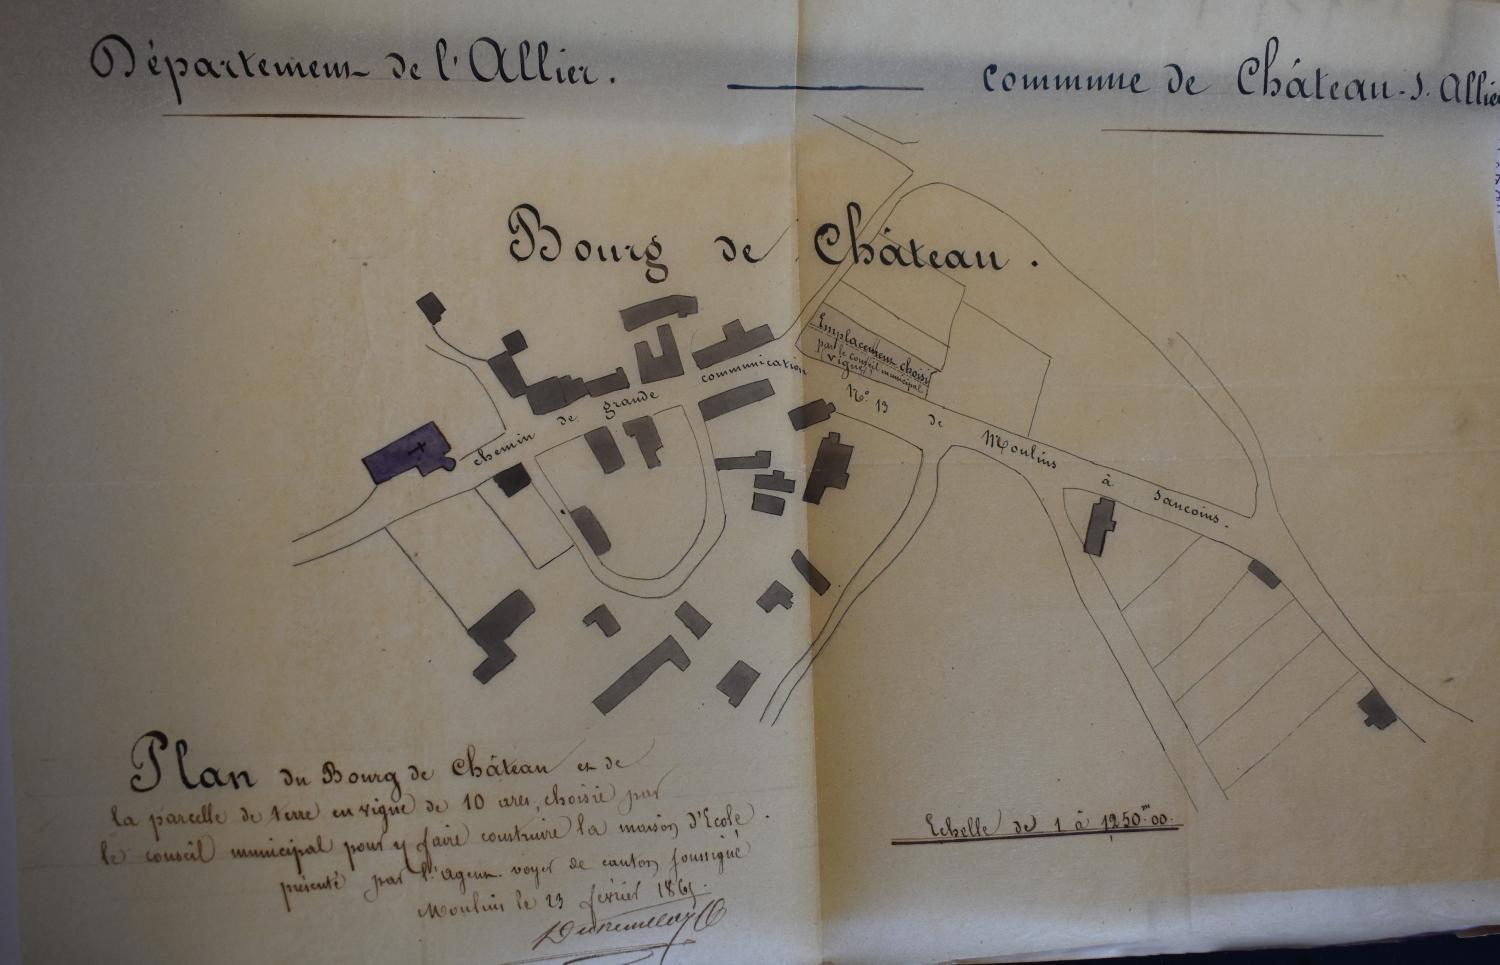 Département de l'Allier.
Commune de Château-s. Allier
Bourg de Château.
Emplacement choisi
par le conseil municipal
(vigne)
chemin de grande communication N° 13 de Moulins à Sancoins.
Plan du Bourg de Château et de
la parcelle de terre en vigne de 10 ares, choisie par
le conseil municipal pour y faire construire la maison d'Ecole.
présenté par l'agent-voyer de canton soussigné
Moulins le 23 février 186
Echelle de 1 à 1250m00.